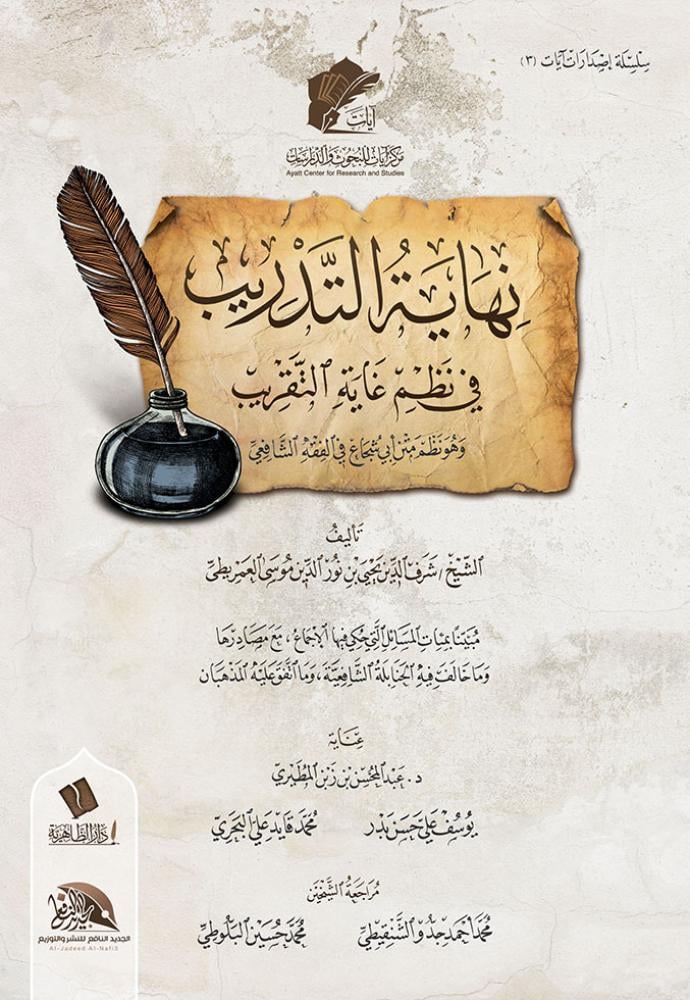 سِلْسِلَة إِصْدَارَات آيَات (٣)
آيات
مركز آيات للبحوث والدراسات
Ayatt Center for Research and Studies
نِهَايَةُ التَّدْرِيبِ
فِي نَظْمِ غَايَةِ التَّقْرِيبِ
وَهُوَ نَظْمُ مَتْنِ أَبِي شُجَاعٍ فِي الفِقْهِ الشَّافِعِيِّ
تَأْلِيفُ
الشَّيْخِ / شَرَفِ الدِّينِ يَحْيَى بْنِ نُورِ الدِّينِ مُوسَى العِمْرِيطِيِّ
مُبَيَّنًا بِمِئَاتِ المَسَائِلِ الَّتِي حُكِيَ فِيهَا الإِجْمَاعُ، مَعَ مَصَادِرِهَا
وَمَا خَالَفَ فِيهِ الحَنَابِلَةُ الشَّافِعِيَّةَ، وَمَا اتَّفَقَ عَلَيْهِ المَذْهَبَانِ
عِنَايَة
د. عَبْدُ المُحْسِنِ بْنُ زَبْنٍ المُطَيْرِيُّ
يُوسُف عَلِي حَسَن بَدْر
مُحَمَّد قَايِد عَلِي البَحْرِي
مُرَاجَعَةُ الشَّيْخَيْنِ
مُحَمَّد أَحْمَد جِدُّو الشَّنْقِيطِيِّ
مُحَمَّد حُسَيْن البَلُوطِي
دار الظاهرية
الجديد النافع
الجديد النافع للنشر والتوزيع
Al-Jadeed Al-Nafi3